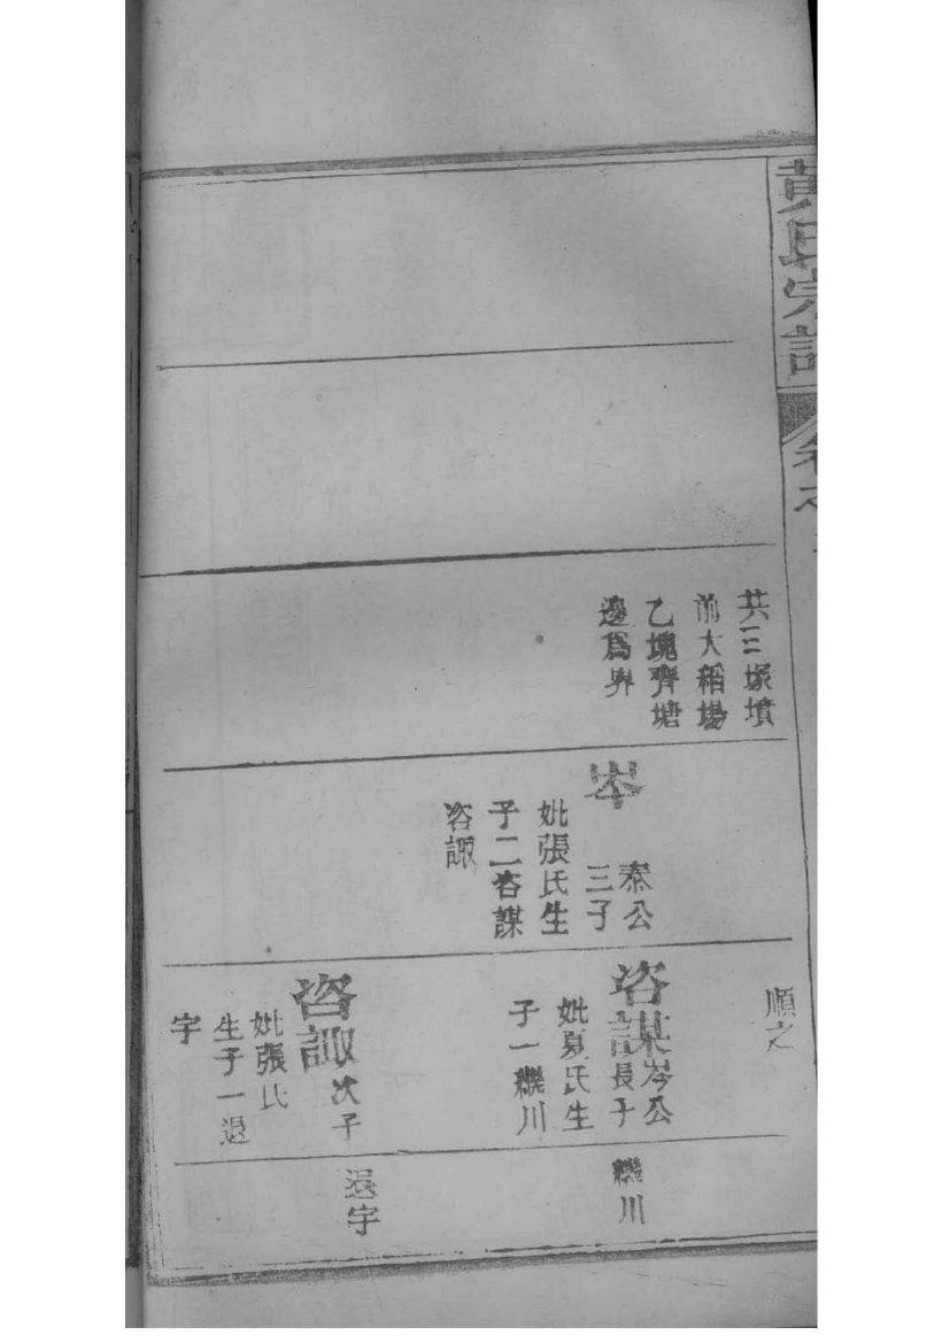 黃氏宗譜
卷之
共三塚墳
前大稻場
乙塊齊塘
邊爲界
岑
泰公
三子
妣張氏生
子二咨謀
咨諏
順之
咨謀
岑公
長子
妣夏氏生
子一
川
咨諏
次子
妣張氏
生子一退
宇
川
退宇